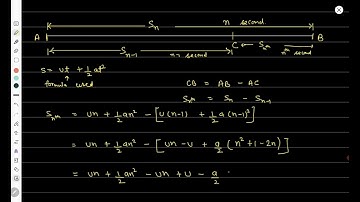 Sn n second
A B
Sn-1 C Snth nth second
S = ut + 1/2 at²
formula used CB = AB - AC
Snth = Sn - Sn-1
Snth = un + 1/2 an² - [u(n-1) + 1/2 a(n-1)²]
= un + 1/2 an² - [un - u + a/2 (n² + 1 - 2n)]
= un + 1/2 an² - un + u - a/2